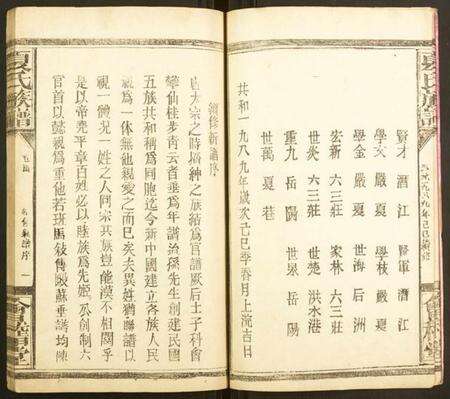 賢才 酒江 賢軍 酒江
學文 嚴夏 學枝 嚴夏
學金 嚴夏 世海 后洲
宏新 六三莊 家林 六三莊
世炎 六三莊 世楚 洪水港
重九 岳陽 世景 岳陽
世萬 夏巷
共和一九八九年歲次己巳季春月上浣吉日
袁氏族譜
續修新譜序
大宗之時縉紳之族結為官譜厥后士子科會
攀仙桂步青云者垂為年譜孫先生創建民國
五族共和稱為同胞迄今新中國建立各族人民
親為一体無他親愛之而已矣夫異姓猶聯譜以
視一體况一姓之人同宗共族豈能漠不相關乎
是以帝堯平章百姓必以睦族為先姬孔創制六
官首以懿親為重他若班馬歐蘇垂譜均陳
袁氏族譜